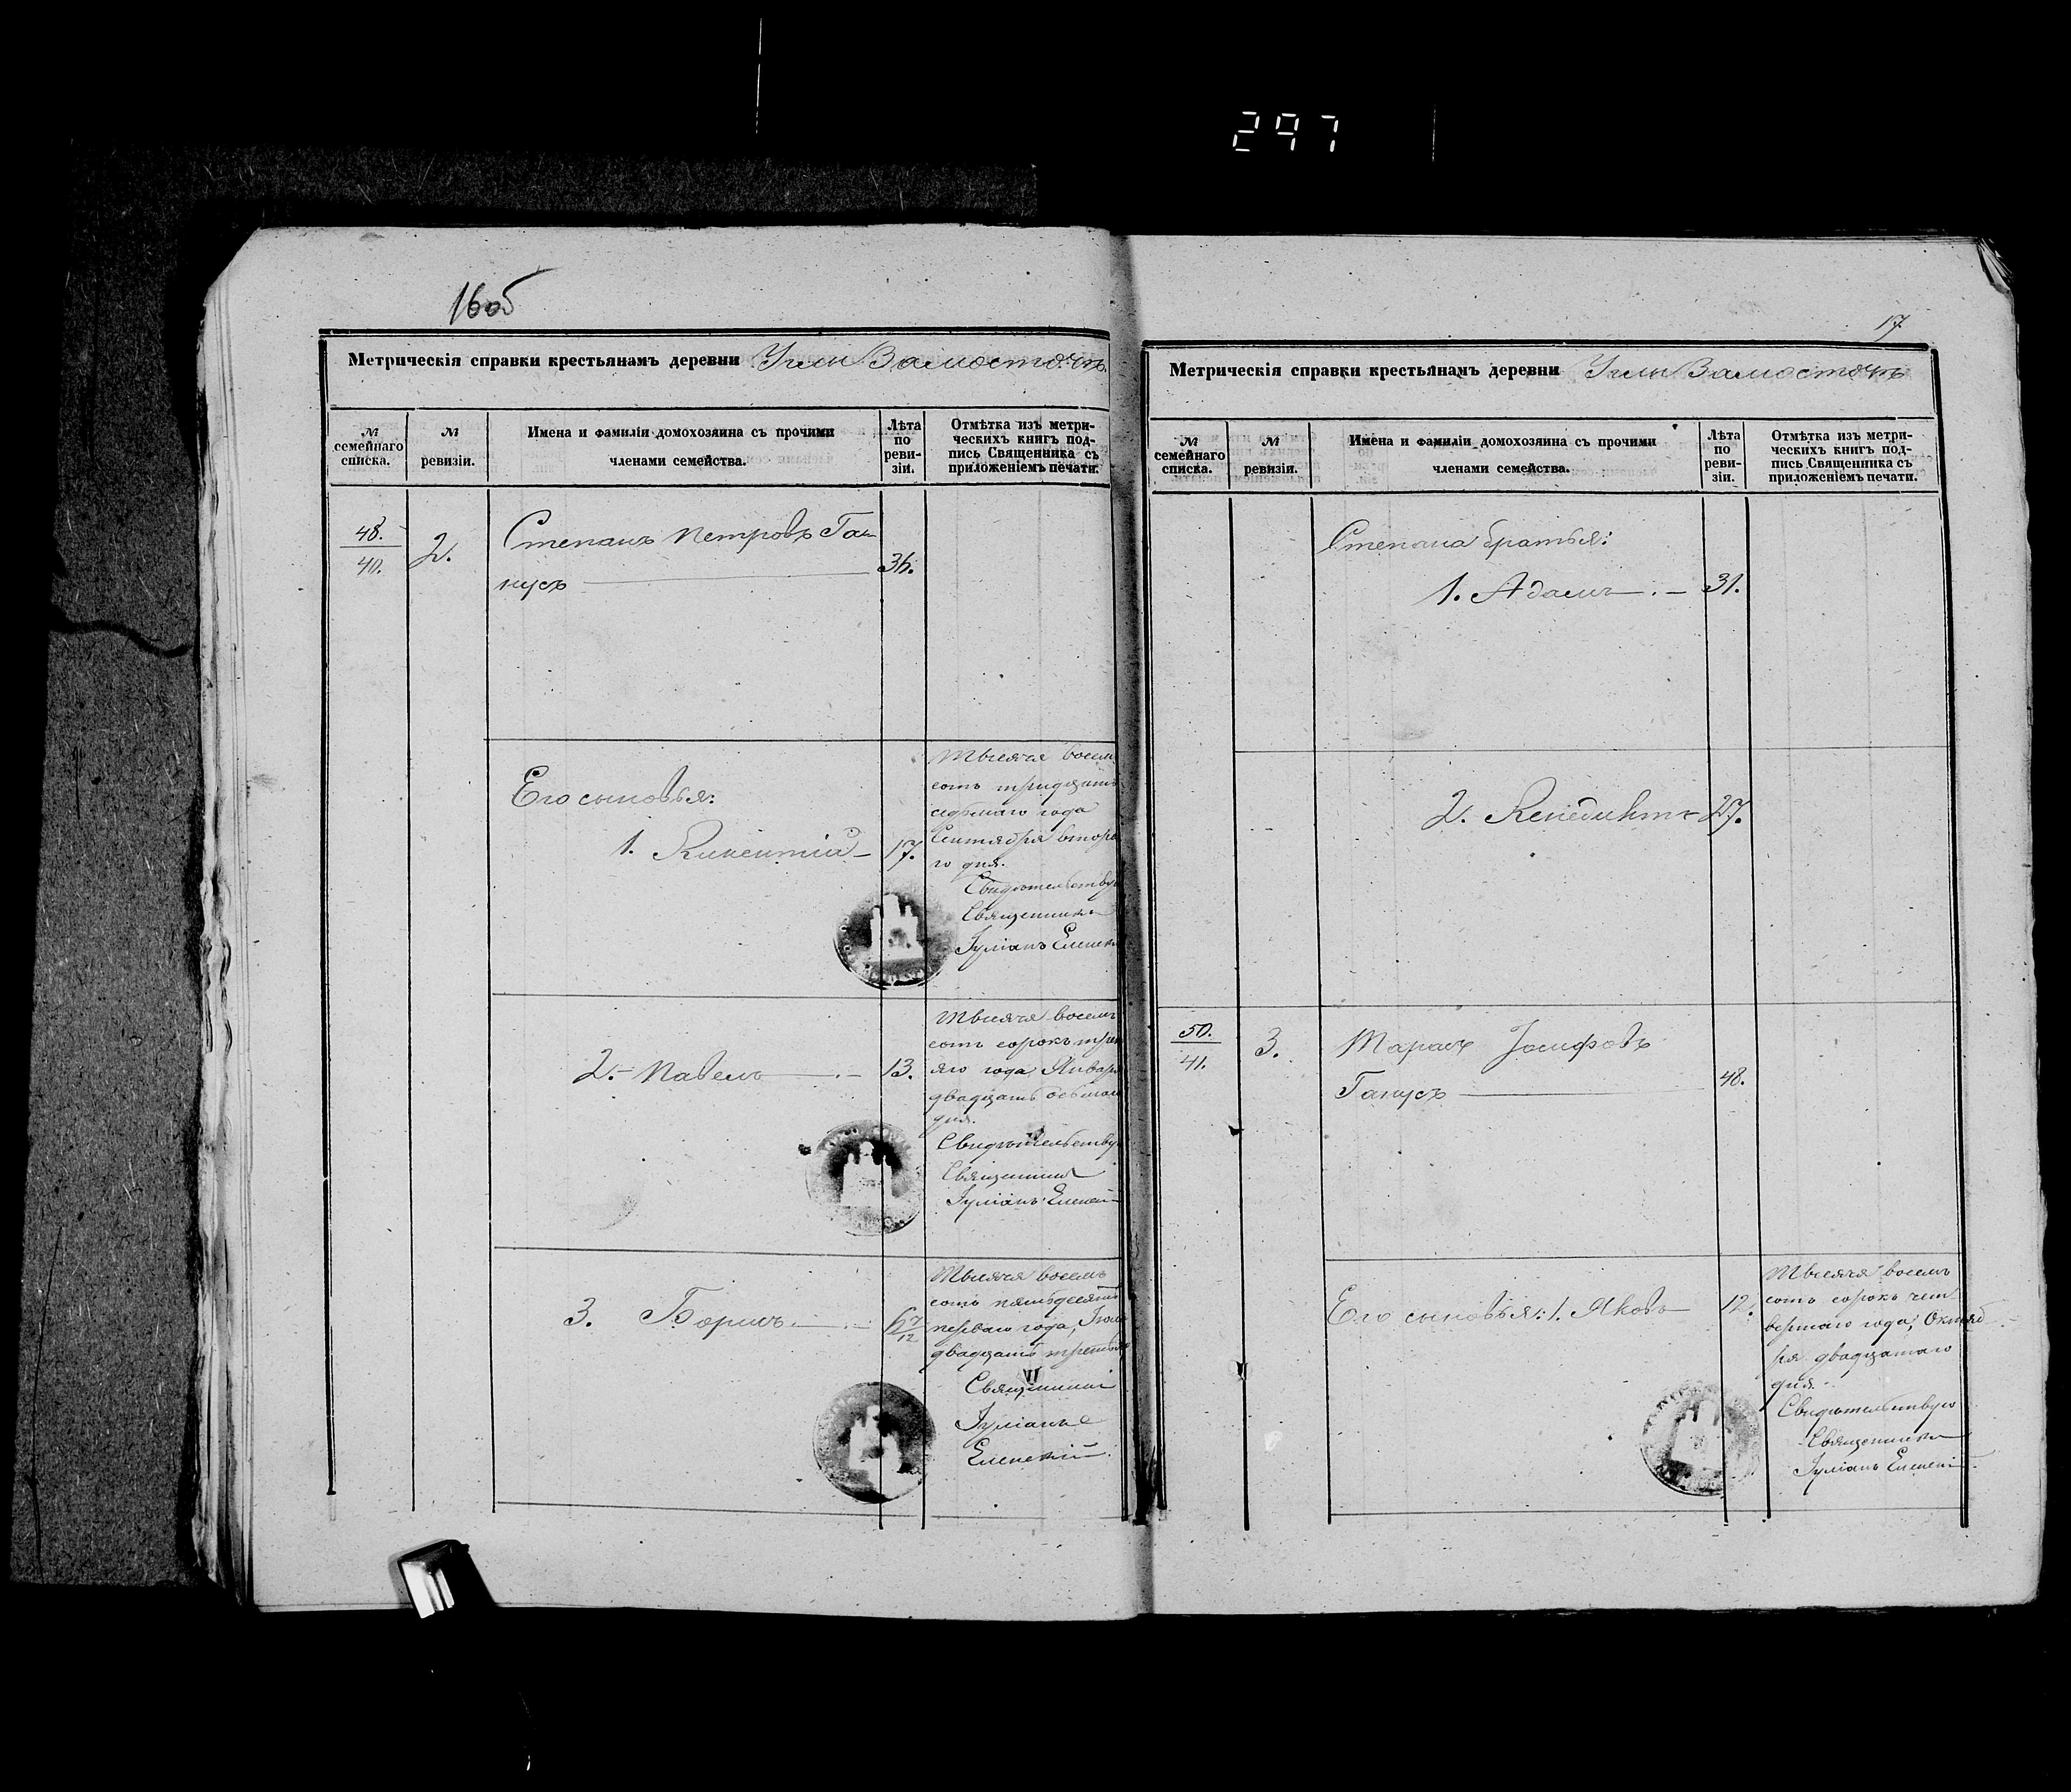 297
16об
Метрическія справки крестьянамъ деревни
№ семейнаго списка.
№ ревизіи.
Имена и фамиліи домохозяина съ прочими
членами семейства.
Лѣта по реви-зіи.
Отмѣтка изъ метри-
ческихъ книгъ под-
пись Священника съ
приложеніемъ печати.
48.
40.
2.
Степанъ Петровъ Га-
нусъ
36.
Его сыновья:
1. Викентій
17.
Тысяча восемь
сотъ тридцать
седьмаго года
Сентября второ
го дня.
Свидѣтельствую
Священникъ
Іуліанъ
2. Павелъ
13.
Тысяча восемь
сотъ сорокъ тре
яго года Января
двадцать осьмаго
дня.
Свидѣтельствую
Священникъ
Іуліанъ
3. Борисъ
7
12
Тысяча восемь
сотъ пятьдесятъ
перваго года,
двадцать третьяго
Священникъ
Іуліанъ
17
Метрическія справки крестьянамъ деревни
№ семейнаго списка.
№ ревизіи.
Имена и фамиліи домохозяина съ прочими
членами семейства.
Лѣта по реви-зіи.
Отмѣтка изъ метри-
ческихъ книгъ под-
пись Священника съ
приложеніемъ печати.
Степана братья:
1. Адамъ
31.
2. Бенедиктъ
27.
50.
41.
3.
Тарасъ Іосифовъ
Ганусъ
48.
Его сыновья: 1. Яковъ
12.
Тысяча восемь
сотъ сорокъ чет
вертаго года, Октяб
ря двадцатаго
дня.
Свидѣтельствую
Священникъ
Іуліанъ